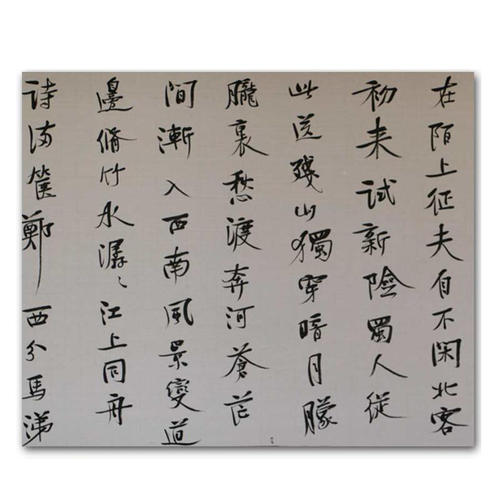 在陌上征夫自不闲北客
初来试新險蜀人從
此送殘山獨穿暗月朦
朧裏愁渡奔河蒼茫
间漸入西南風景變道
邊脩竹水潺〻江上同舟
诗满篋鄭西分馬涕